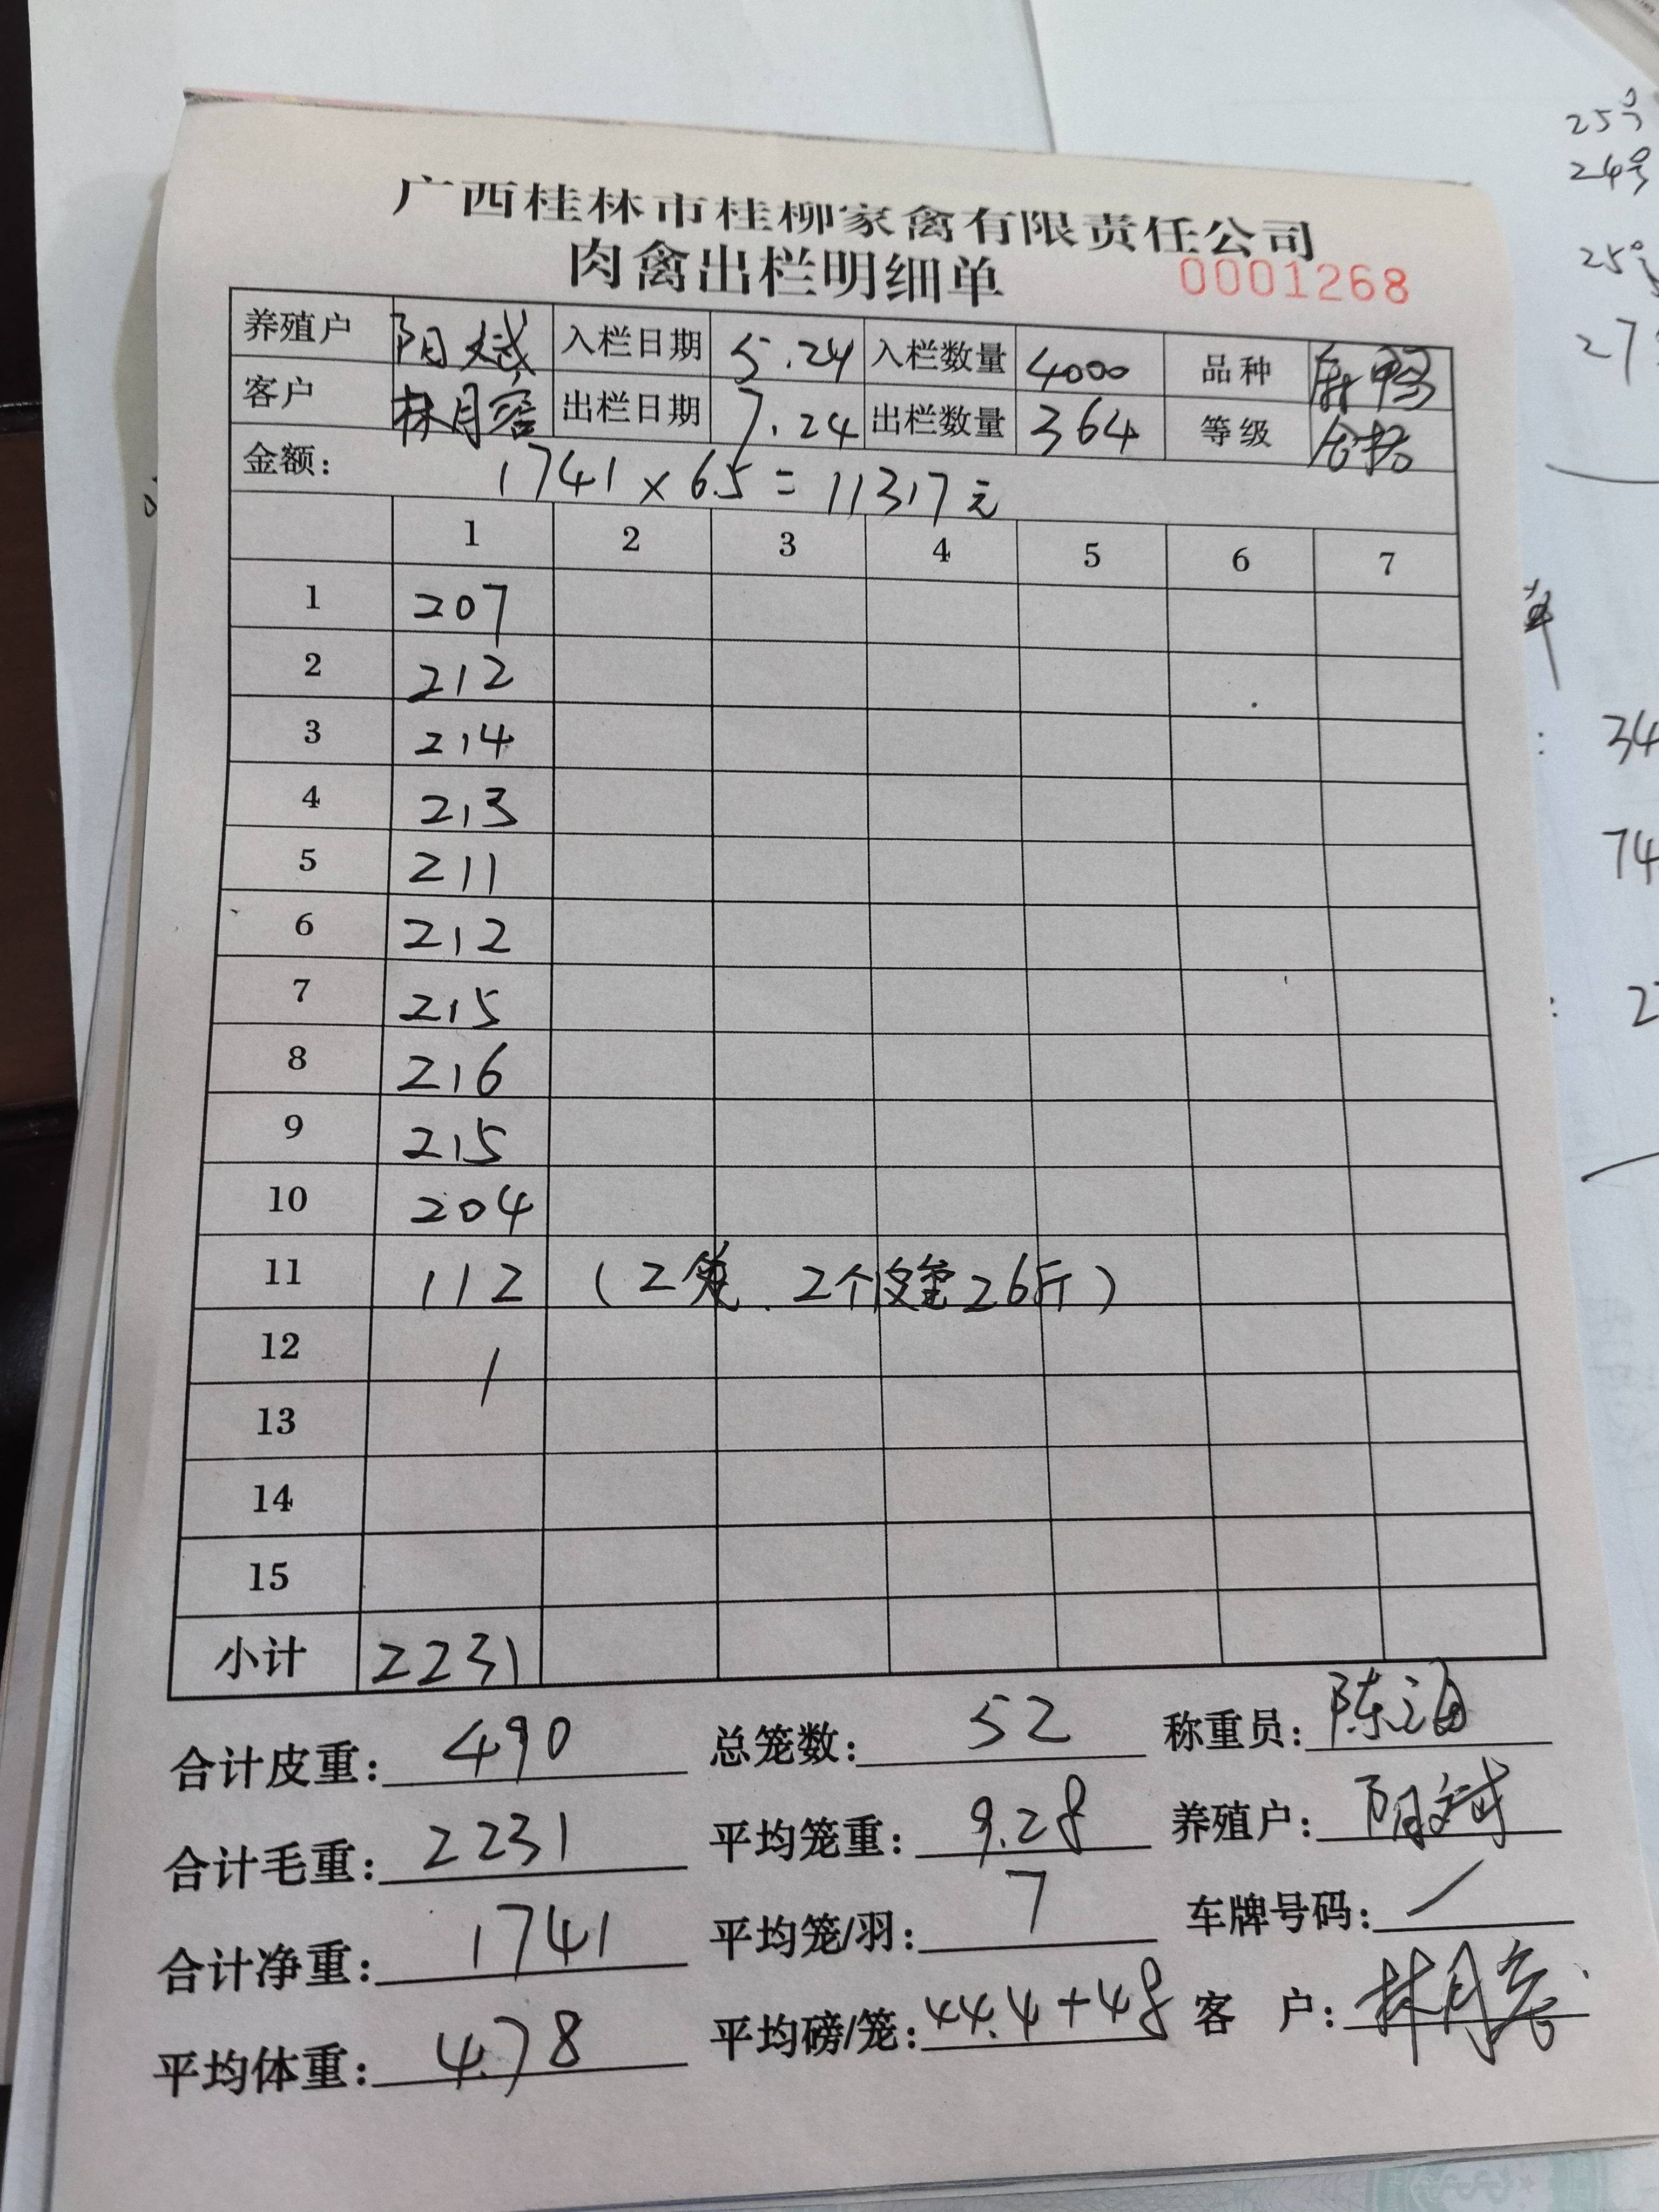 广西桂林市桂柳家禽有限责任公司
肉禽出栏明细单 0001268
养殖户 阳斌 入栏日期 5.24 入栏数量 4000 品种 麻鸭
客户 林月 出栏日期 7.24 出栏数量 364 等级 合格
金额: 1741 x 6.5 = 11317元
1 2 3 4 5 6 7
1 207
2 212
3 214
4 213
5 211
6 212
7 215
8 216
9 215
10 204
11 112 (2笼、2个皮重26斤)
12 /
13
14
15
小计 2231
合计皮重: 490 总笼数: 52 称重员: 陈海
合计毛重: 2231 平均笼重: 9.28 养殖户: 阳斌
合计净重: 1741 平均笼/羽: 7 车牌号码: /
平均体重: 4.78 平均磅/笼: 44.4+48 客 户: 林月
25号
24号
25号
27
单
: 34
74
: 2